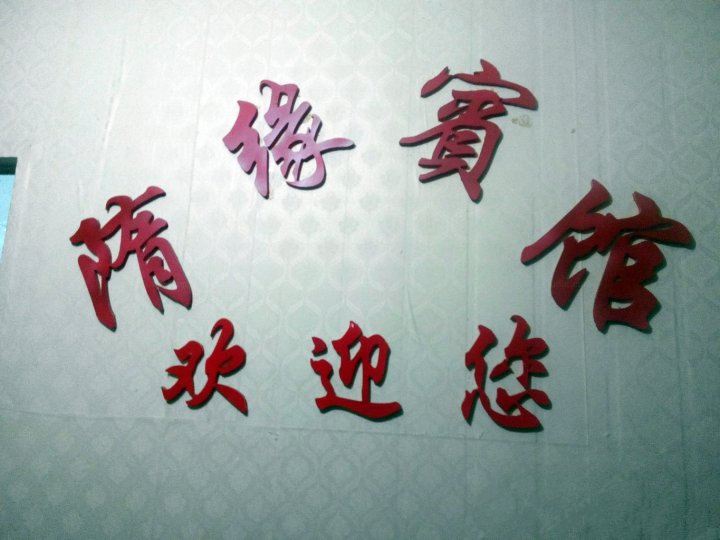 隋缘賓馆
欢迎您